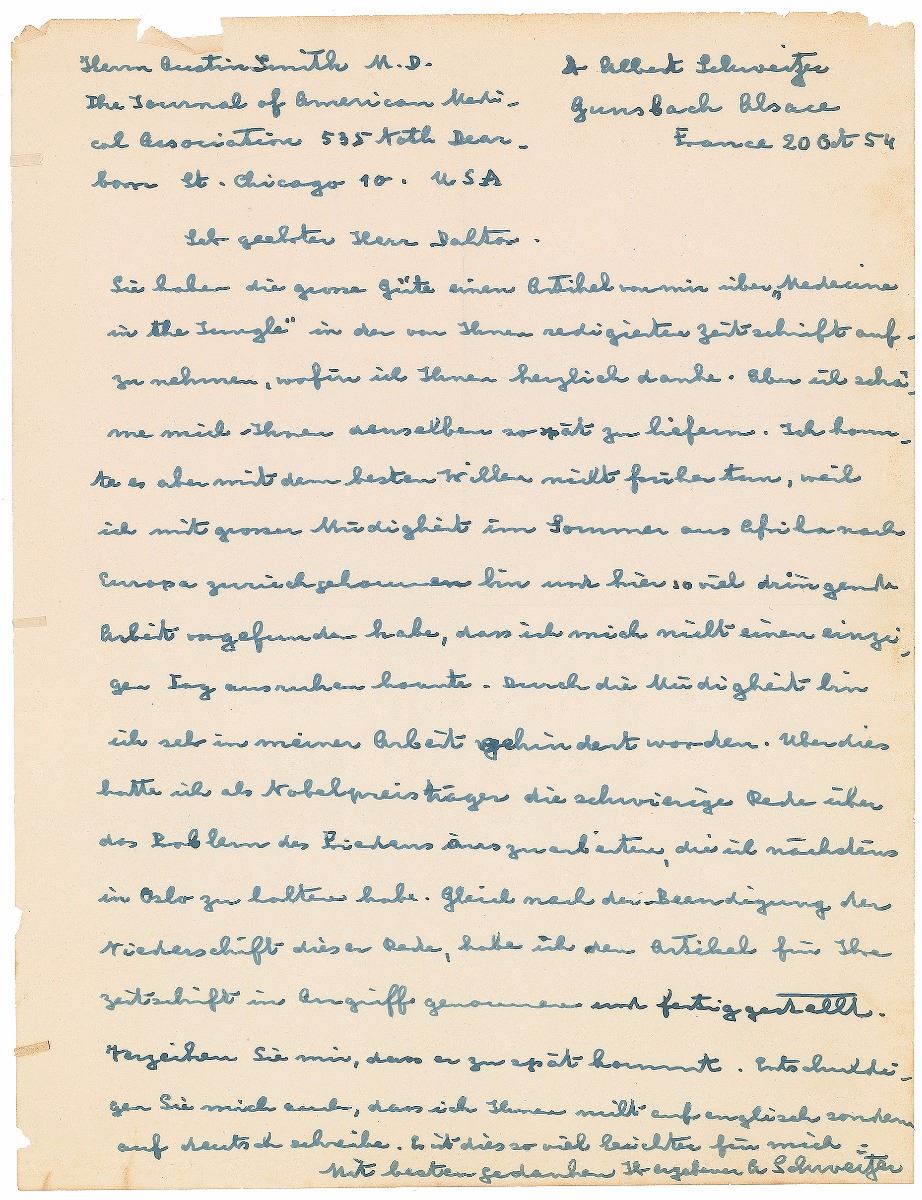 Herrn Austin Smith M.D.
The Journal of American Medi-
cal Association 535 Noth Dear-
born St. Chicago 10. USA
Dr Albert Schweitzer
Gunsbach Alsace
France 20 Oct 54
Sehr geehrter Herr Doktor.
Sie haben die grosse Güte einen Artikel von mir über „Medecine
in the Jungle" in der von Ihnen redigierten Zeitschrift auf-
zu nehmen, wofür ich Ihnen herzlich danke. Aber ich schä-
me mich Ihnen denselben so spät zu liefern. Ich konn-
te es aber mit dem besten Willen nicht früher tun, weil
ich mit grosser Müdigkeit im Sommer aus Afrika nach
Europa zurückgekommen bin und hier so viel dringende
Arbeit vorgefunden habe, dass ich mich nicht einen einzi-
gen Tag ausruhen konnte. Durch die Müdigkeit bin
ich sehr in meiner Arbeit gehindert worden. Überdies
hatte ich als Nobelpreisträger die schwierige Rede über
das Problem des Friedens auszuarbeiten, die ich nächstens
in Oslo zu halten habe. Gleich nach der Beendigung der
Niederschrift dieser Rede, habe ich den Artikel für Ihre
Zeitschrift in Angriff genommen und fertiggestellt.
Verzeihen Sie mir, dass er zu spät kommt. Entschuldi-
gen Sie mich auch, dass ich Ihnen nicht auf englisch sondern
auf deutsch schreibe. Es ist dies so viel leichter für mich.
Mit besten gedanken Ihr ergebener A Schweitzer